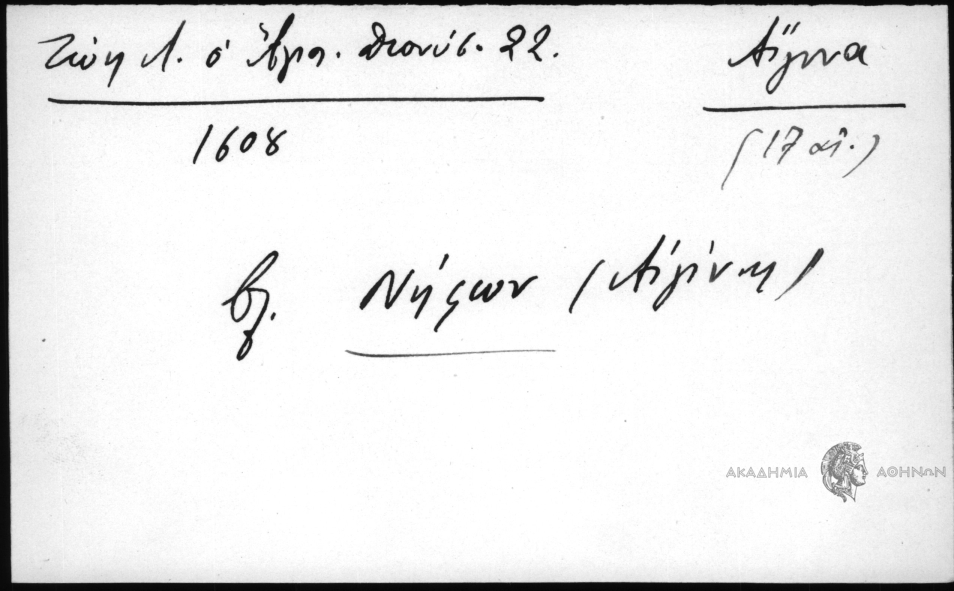 Ζώη Λ. ὁ Ἅγιο. Διονύσ. 22.
Αἴγινα
1608
(17 αἰ.)
βλ. Νήσων (Αἰγίνης)
ΑΚΑΔΗΜΙΑ ΑΘΗΝΩΝ